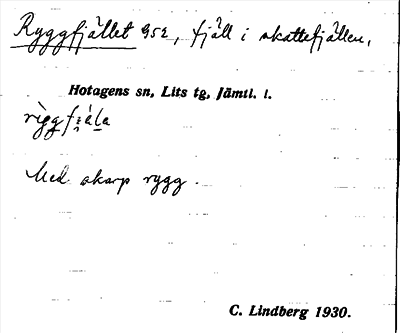 Ryggfjället 952, fjäll i skattefjällen,
Hotagens sn, Lits tg, Jämtl. l.
Med skarp rygg.
C. Lindberg 1930.